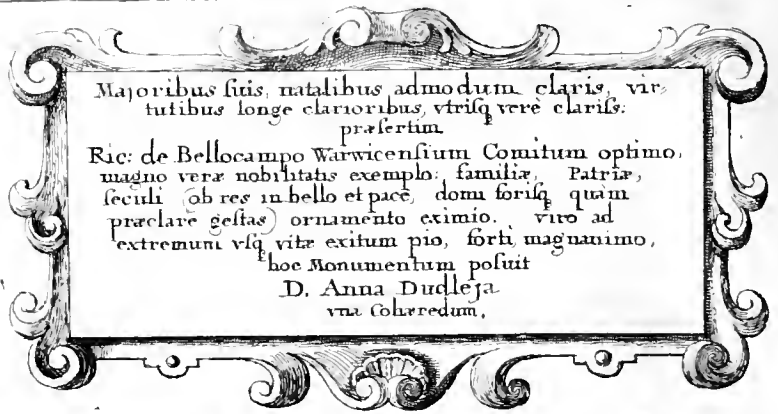 Majoribus suis, natalibus admodum claris, vir-
tutibus longe clarioribus, vtrisq verè clariss:
præsertim
Ric: de Bellocampo Warwicensium Comitum optimo,
magno veræ nobilitatis exemplo: familiæ, Patriæ,
seculi (ob res in bello et pace, domi forisq quàm
præclarè gestas) ornamento eximio. viro ad
extremum vsq vitæ exitum pio, forti, magnanimo,
hoc Monumentum posuit
D. Anna Dudleja
vna Cohæredum.